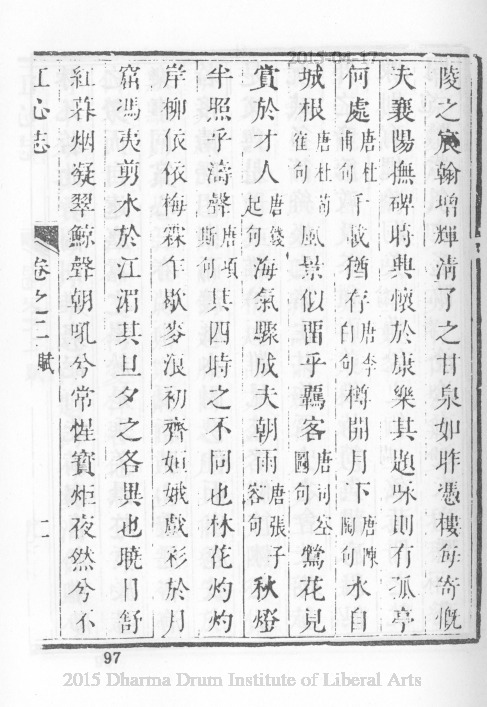 陵之宸翰增輝淸了之甘泉如昨憑樓每寄慨
夫襄陽撫碑時興懷於康樂其題咏則有孤亭
何處唐杜甫句千載猶存唐李白句樽開月下唐陳陶句水自
城根唐杜荀隺句風景似畱乎羈客唐司空圖句鶯花見
賞於才人唐錢起句海氣驟成夫朝雨唐張子容句秋燈
半照乎濤聲唐項斯句其四時之不同也林花灼灼
岸柳依依梅霖乍歇麥浪初齊姮娥戲彩於月
窟馮夷剪水於江湄其旦夕之各異也曉日舒
紅暮烟凝翠鯨聲朝吼兮常惺寶炬夜然兮不
江心志
卷之二 賦
二
97
2015 Dharma Drum Institute of Liberal Arts